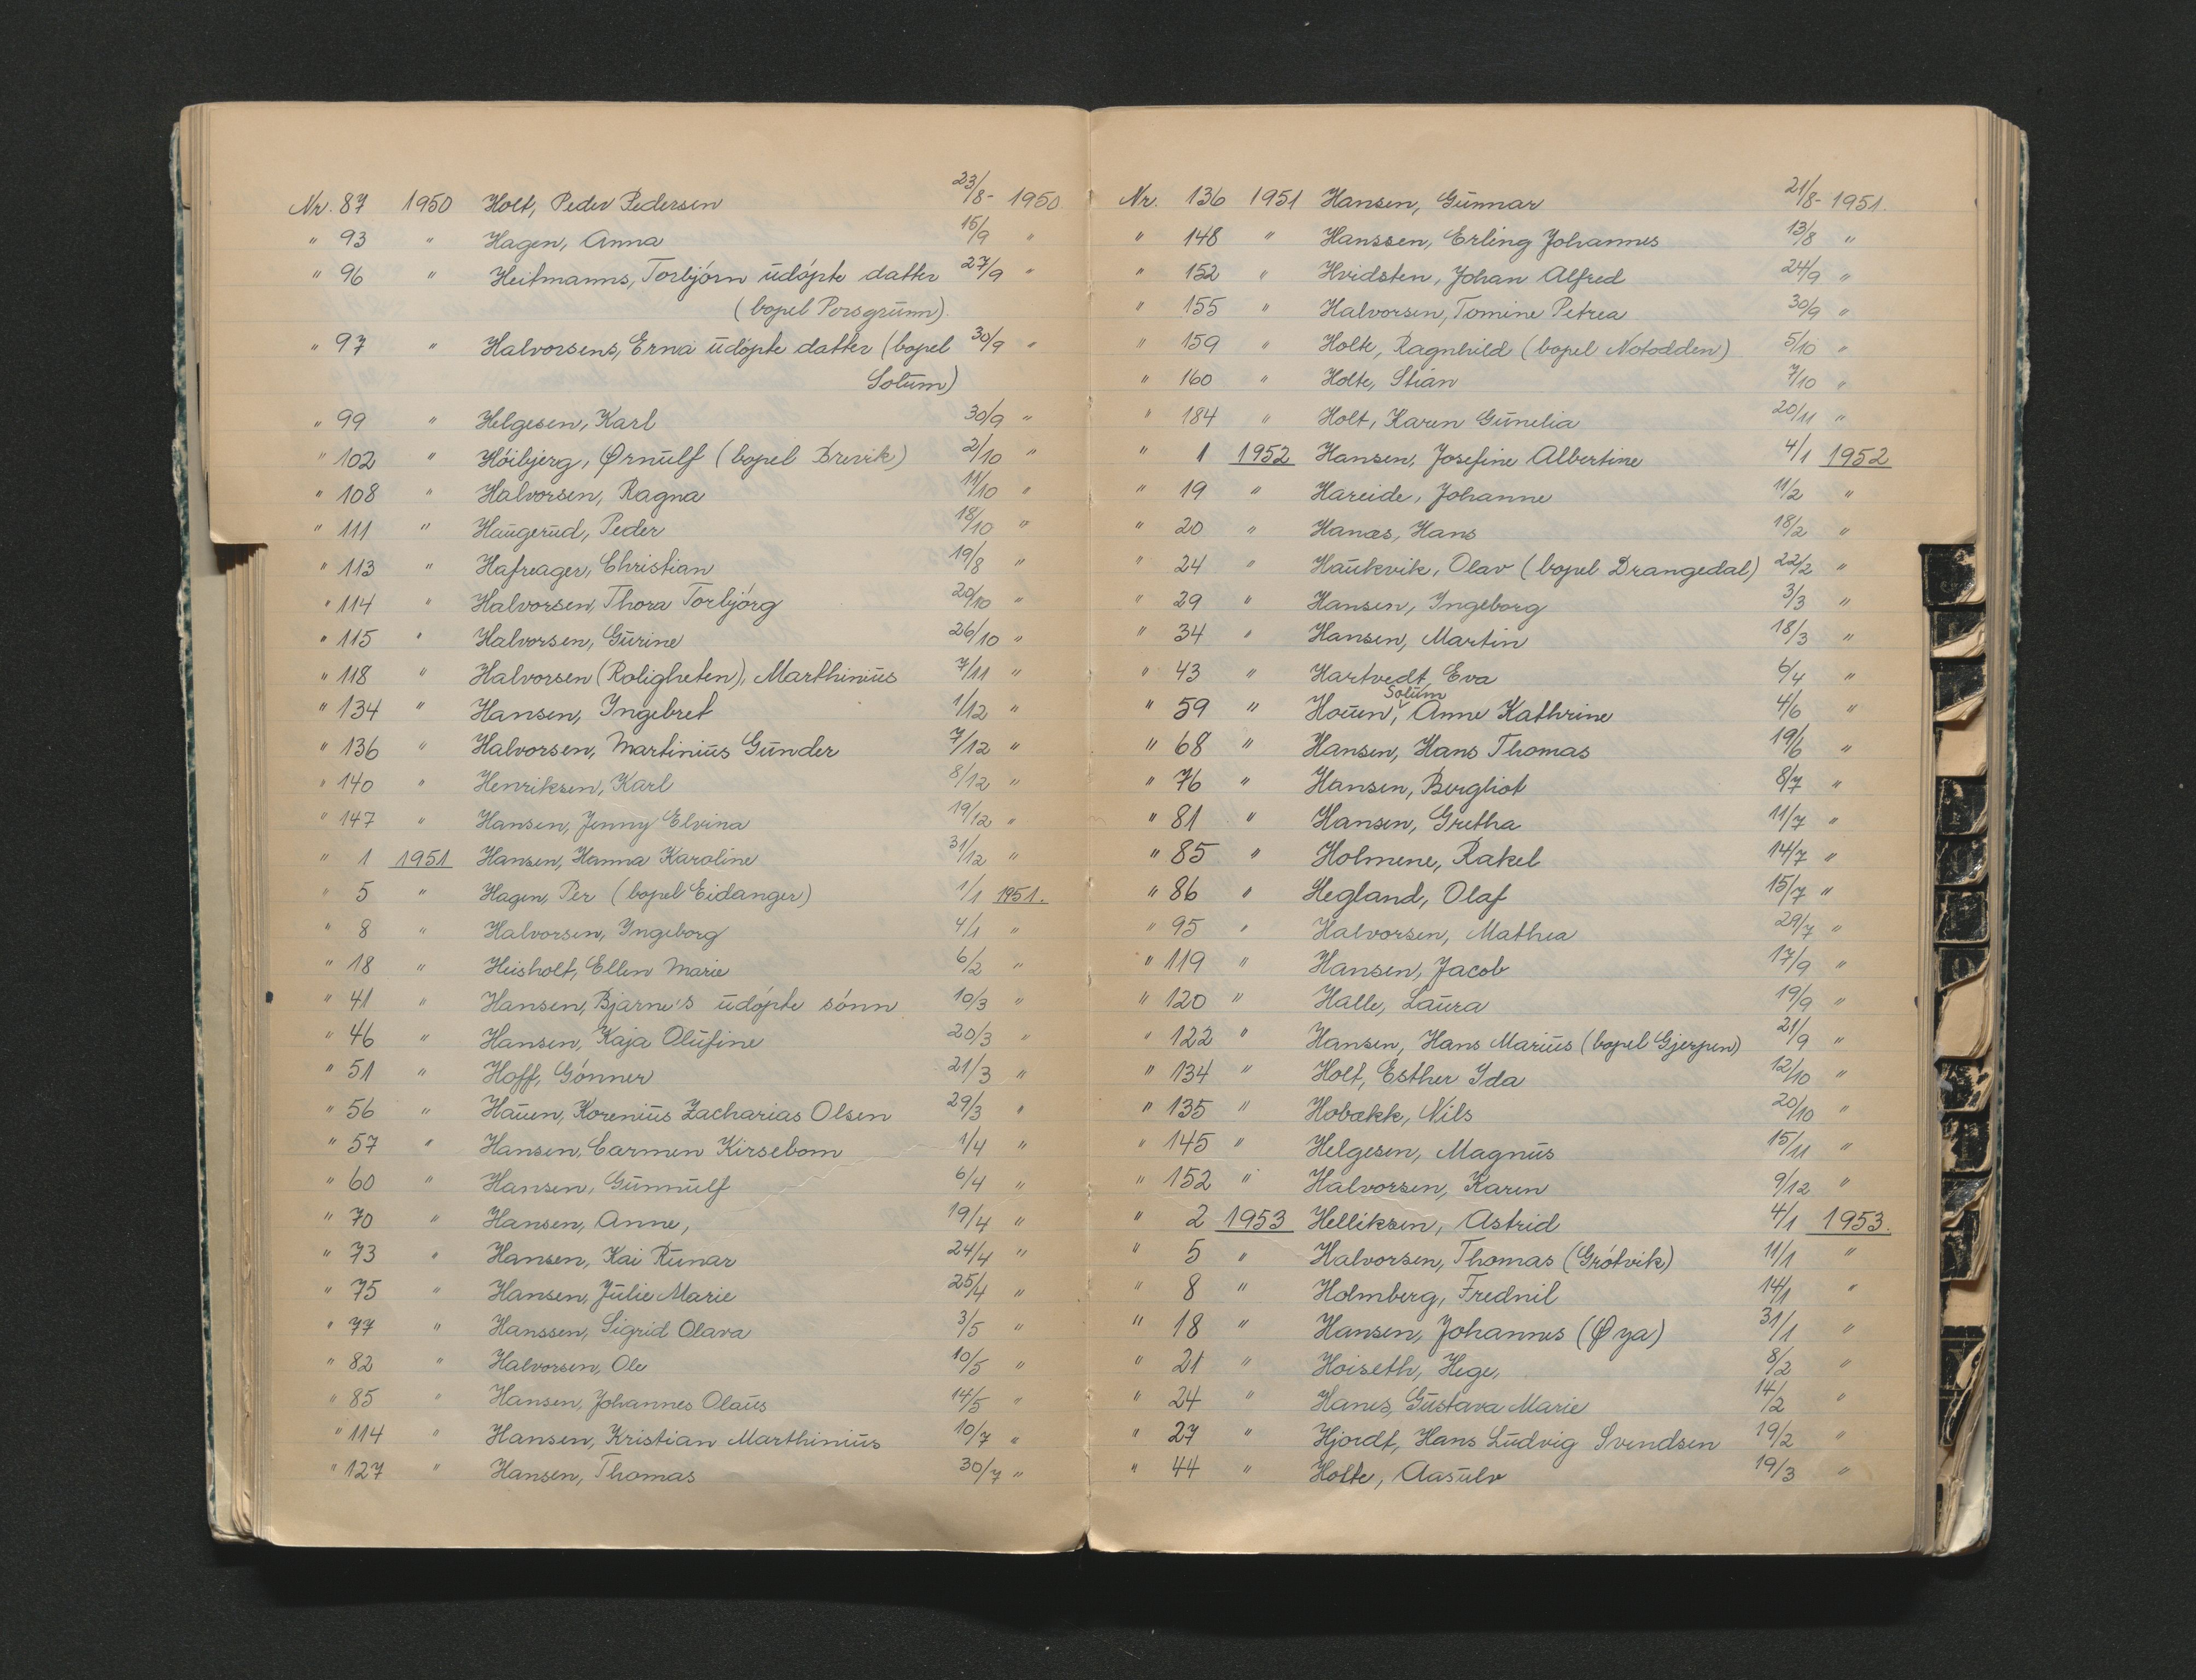 Nr. 87 1950 Holt, Peder Pedersen 23/8- 1950.
" 93 " Hagen, Anna 15/9 "
" 96 " Heitmanns, Torbjörn udöpte datter 27/9 "
(bopel Porsgrunn).
" 97 " Halvorsens, Erna udöpte datter (bopel 30/9 "
Solum)
" 99 " Helgesen, Karl 30/9 "
" 102 " Höibjerg, Ørnulf (bopel Brevik) 2/10 "
" 108 " Halvorsen, Ragna 11/10 "
" 111 " Haugerud, Peder 18/10 "
" 113 " Hafreager, Christian 19/8 "
" 114 " Halvorsen, Thora Torbjörg 20/10 "
" 115 " Halvorsen, Gurine 26/10 "
" 118 " Halvorsen (Roligheten), Marthinius 7/11 "
" 134 " Hansen, Ingebret 1/12 "
" 136 " Halvorsen, Martinius Gunder 7/12 "
" 140 " Henriksen, Karl 8/12 "
" 147 " Hansen, Jenny Elvina 19/12 "
" 1 1951 Hansen, Hanna Karoline 31/12 "
" 5 " Hagen, Per (bopel Eidanger) 1/1 1951.
" 8 " Halvorsen, Ingeborg 4/1 "
" 18 " Heisholt, Ellen Marie 6/2 "
" 41 " Hansen, Bjarne's udöpte sönn 10/3 "
" 46 " Hansen, Kaja Olufine 20/3 "
" 51 " Hoff, Gönner 21/3 "
" 56 " Hauen, Korenius Zacharias Olsen 29/3 "
" 57 " Hansen, Carmen Kirsebom 1/4 "
" 60 " Hansen, Gunnulf 6/4 "
" 70 " Hansen, Anne, 19/4 "
" 73 " Hansen, Kai Runar 24/4 "
" 75 " Hansen, Julie Marie 25/4 "
" 77 " Hanssen, Sigrid Olava 3/5 "
" 82 " Halvorsen, Ole 10/5 "
" 85 " Hansen, Johannes Olaus 14/5 "
" 114 " Hansen, Kristian Marthinius 10/7 "
" 127 " Hansen, Thomas 30/7 "
Nr. 136 1951 Hansen, Gunnar 21/8- 1951.
" 148 " Hanssen, Erling Johannes 13/8 "
" 152 " Hvidsten, Johan Alfred 24/9 "
" 155 " Halvorsen, Tomine Petrea 30/9 "
" 159 " Holte, Ragnhild (bopel Notodden) 5/10 "
" 160 " Holte, Stian 7/10 "
" 184 " Holt, Karen Gunelia 20/11 "
" 1 1952 Hansen, Josefine Albertine 4/1 1952
" 19 " Hareide, Johanne 11/2 "
" 20 " Hanæs, Hans 18/2 "
" 24 " Haukvik, Olav (bopel Drangedal) 22/2 "
" 29 " Hansen, Ingeborg 3/3 "
" 34 " Hansen, Martin 18/3 "
" 43 " Hartvedt, Eva 6/4 "
Solum
" 59 " Houen, Anne Kathrine 4/6 "
" 68 " Hansen, Hans Thomas 19/6 "
" 76 " Hansen, Bergliot 8/7 "
" 81 " Hansen, Gretha 11/7 "
" 85 " Holmene, Rakel 14/7 "
" 86 " Hegland, Olaf 15/7 "
" 95 " Halvorsen, Mathea 29/7 "
" 119 " Hansen, Jacob 17/9 "
" 120 " Halle, Laura 19/9 "
" 122 " Hansen, Hans Marius (bopel Gjerpen) 21/9 "
" 134 " Holt, Esther Ida 12/10 "
" 135 " Hobækk, Nils 20/10 "
" 145 " Helgesen, Magnus 15/11 "
" 152 " Halvorsen, Karen 9/12 "
" 2 1953 Helliksen, Astrid 4/1 1953.
" 5 " Halvorsen, Thomas (Grötvik) 11/1 "
" 8 " Holmberg, Frednil 14/1 "
" 18 " Hansen, Johannes (Øya) 31/1 "
" 21 " Hoiseth, Hege, 8/2 "
" 24 " Hanes, Gustava Marie 14/2 "
" 27 " Hjordt, Hans Ludvig Svendsen 19/2 "
" 44 " Holte, Aasulv 19/3 "